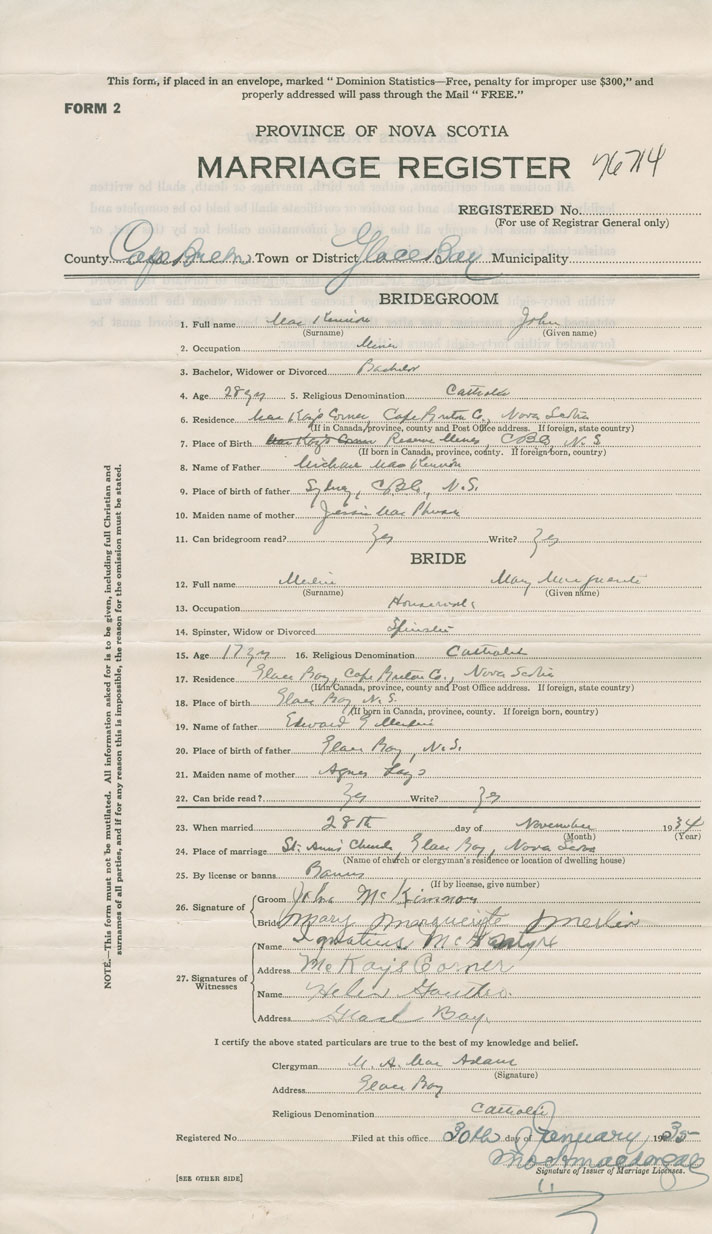 This form, if placed in an envelope, marked " Dominion Statistics—Free, penalty for improper use $300," and
properly addressed will pass through the Mail " FREE."
FORM 2
PROVINCE OF NOVA SCOTIA
MARRIAGE REGISTER
REGISTERED No.
(For use of Registrar General only)
County Cape Breton Town or District Glace Bay Municipality
BRIDEGROOM
1. Full name Mac Kinnon John
(Surname) (Given name)
2. Occupation Miner
3. Bachelor, Widower or Divorced Bachelor
4. Age 28 yrs 5. Religious Denomination Catholic
6. Residence Mac Kay's Corner, Cape Breton Co., Nova Scotia
(If in Canada, province, county and Post Office address. If foreign, state country)
7. Place of Birth Mac Kay's Corner Reserve Mines, CBCo, N.S.
(If born in Canada, province, county. If foreign born, country)
8. Name of Father Michael Mac Kinnon
9. Place of birth of father Sydney, CBCo., N.S.
10. Maiden name of mother Jessie Mac
11. Can bridegroom read? Yes Write? Yes
BRIDE
12. Full name Merlin Mary Marguerite
(Surname) (Given name)
13. Occupation
14. Spinster, Widow or Divorced Spinster
15. Age 17 yrs 16. Religious Denomination Catholic
17. Residence Glace Bay, Cape Breton Co., Nova Scotia
(If in Canada, province, county and Post Office address. If foreign, state country)
18. Place of birth Glace Bay, N.S.
(If born in Canada, province, county. If foreign born, country)
19. Name of father Edward Merlin
20. Place of birth of father Glace Bay, N.S.
21. Maiden name of mother Agnes
22. Can bride read? Yes Write? Yes
23. When married 28th day of November 1934
(Month) (Year)
24. Place of marriage St. Ann's Church, Glace Bay, Nova Scotia
(Name of church or clergyman's residence or location of dwelling house)
25. By license or banns Banns
(If by license, give number)
26. Signature of Groom John McKinnon
Bride Mary Marguerite Merlin
27. Signatures of Witnesses Name Ignatius McIntyre
Address McKays Corner
Name Helen
Address Glace Bay
I certify the above stated particulars are true to the best of my knowledge and belief.
Clergyman M. A. Mac Adam
(Signature)
Address Glace Bay
Religious Denomination Catholic
Registered No. Filed at this office 30th day of January, 1935
Signature of Issuer of Marriage Licenses.
[SEE OTHER SIDE]
NOTE.—This form must not be mutilated. All information asked for is to be given, including full Christian and
surnames of all parties, and if for any reason this is impossible, the reason for the omission must be stated.